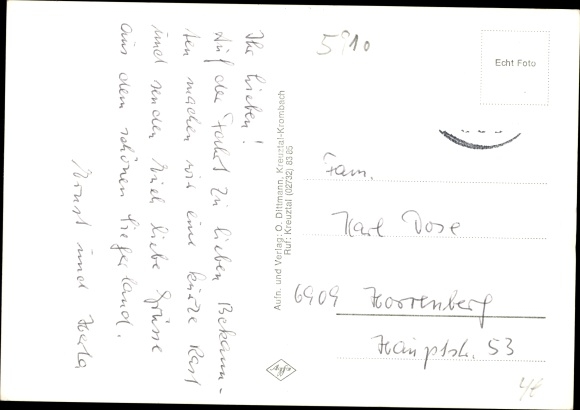 Ihr Lieben!
Auf der Fahrt zu lieben Bekann-
ten machen wir eine kurze Rast
und senden Euch liebe Grüsse
aus dem schönen Siegerland.
Ernst und Herta
Aufn. und Verlag: O. Dittmann, Kreuztal-Krombach
Ruf: Kreuztal (02732) 83 85
5910
Echt Foto
Fam.
Karl Dose
6909 Horrenberg
Hauptstr. 53